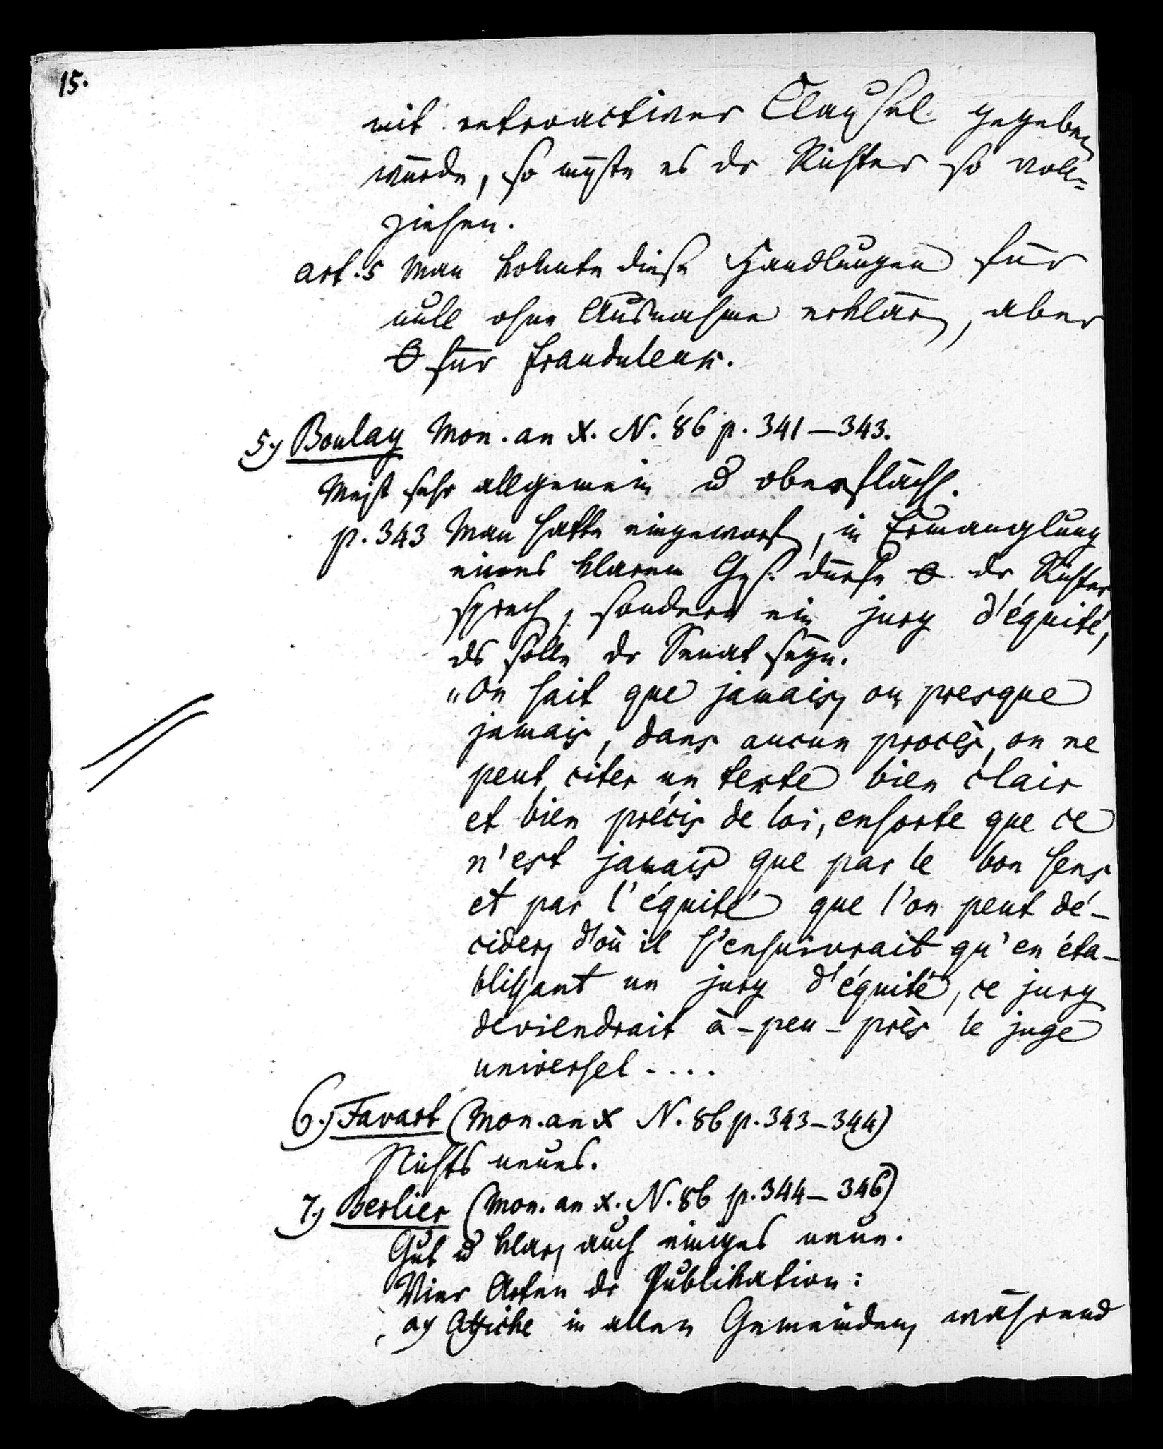 15.
mit retroactiver Clausel gegeben
würde, so müste es dr Richter so voll=
ziehen.
art. 5 Man konnte diese Handlungen für
null ohne Ausnahme erklären, aber
für fraudulens.
5) Boulay Mon. an X. N. 86 p. 341–343.
Meist sehr allgemein u oberflächl.
p. 343 Man hatte eingeworfen, in Ermanglung
eines klaren Ges. dürfe dr Richter
sprechen, sondern ein jury d'équité,
ds solle dr Senat seyn.
„On sait que jamais, ou presque
jamais, dans aucun procès, on ne
peut citer un texte bien clair
et bien précis de loi, ensorte que ce
n'est jamais que par le bon sens
et par l'équité que l'on peut dé-
cider, d'où il s'ensuivrait qu'en éta-
blissant un jury d'équité, ce jury
deviendrait à-peu-près le juge
universel . . . .
6.) Favart (Mon. an X N. 86 p. 343–344)
Nichts neues.
7.) Berlier (Mon. an X. N. 86 p. 344–346)
Gut u klar, auch einiges neue.
Vier Arten dr Publikation:
a) Affiche in allen Gemeinden, während